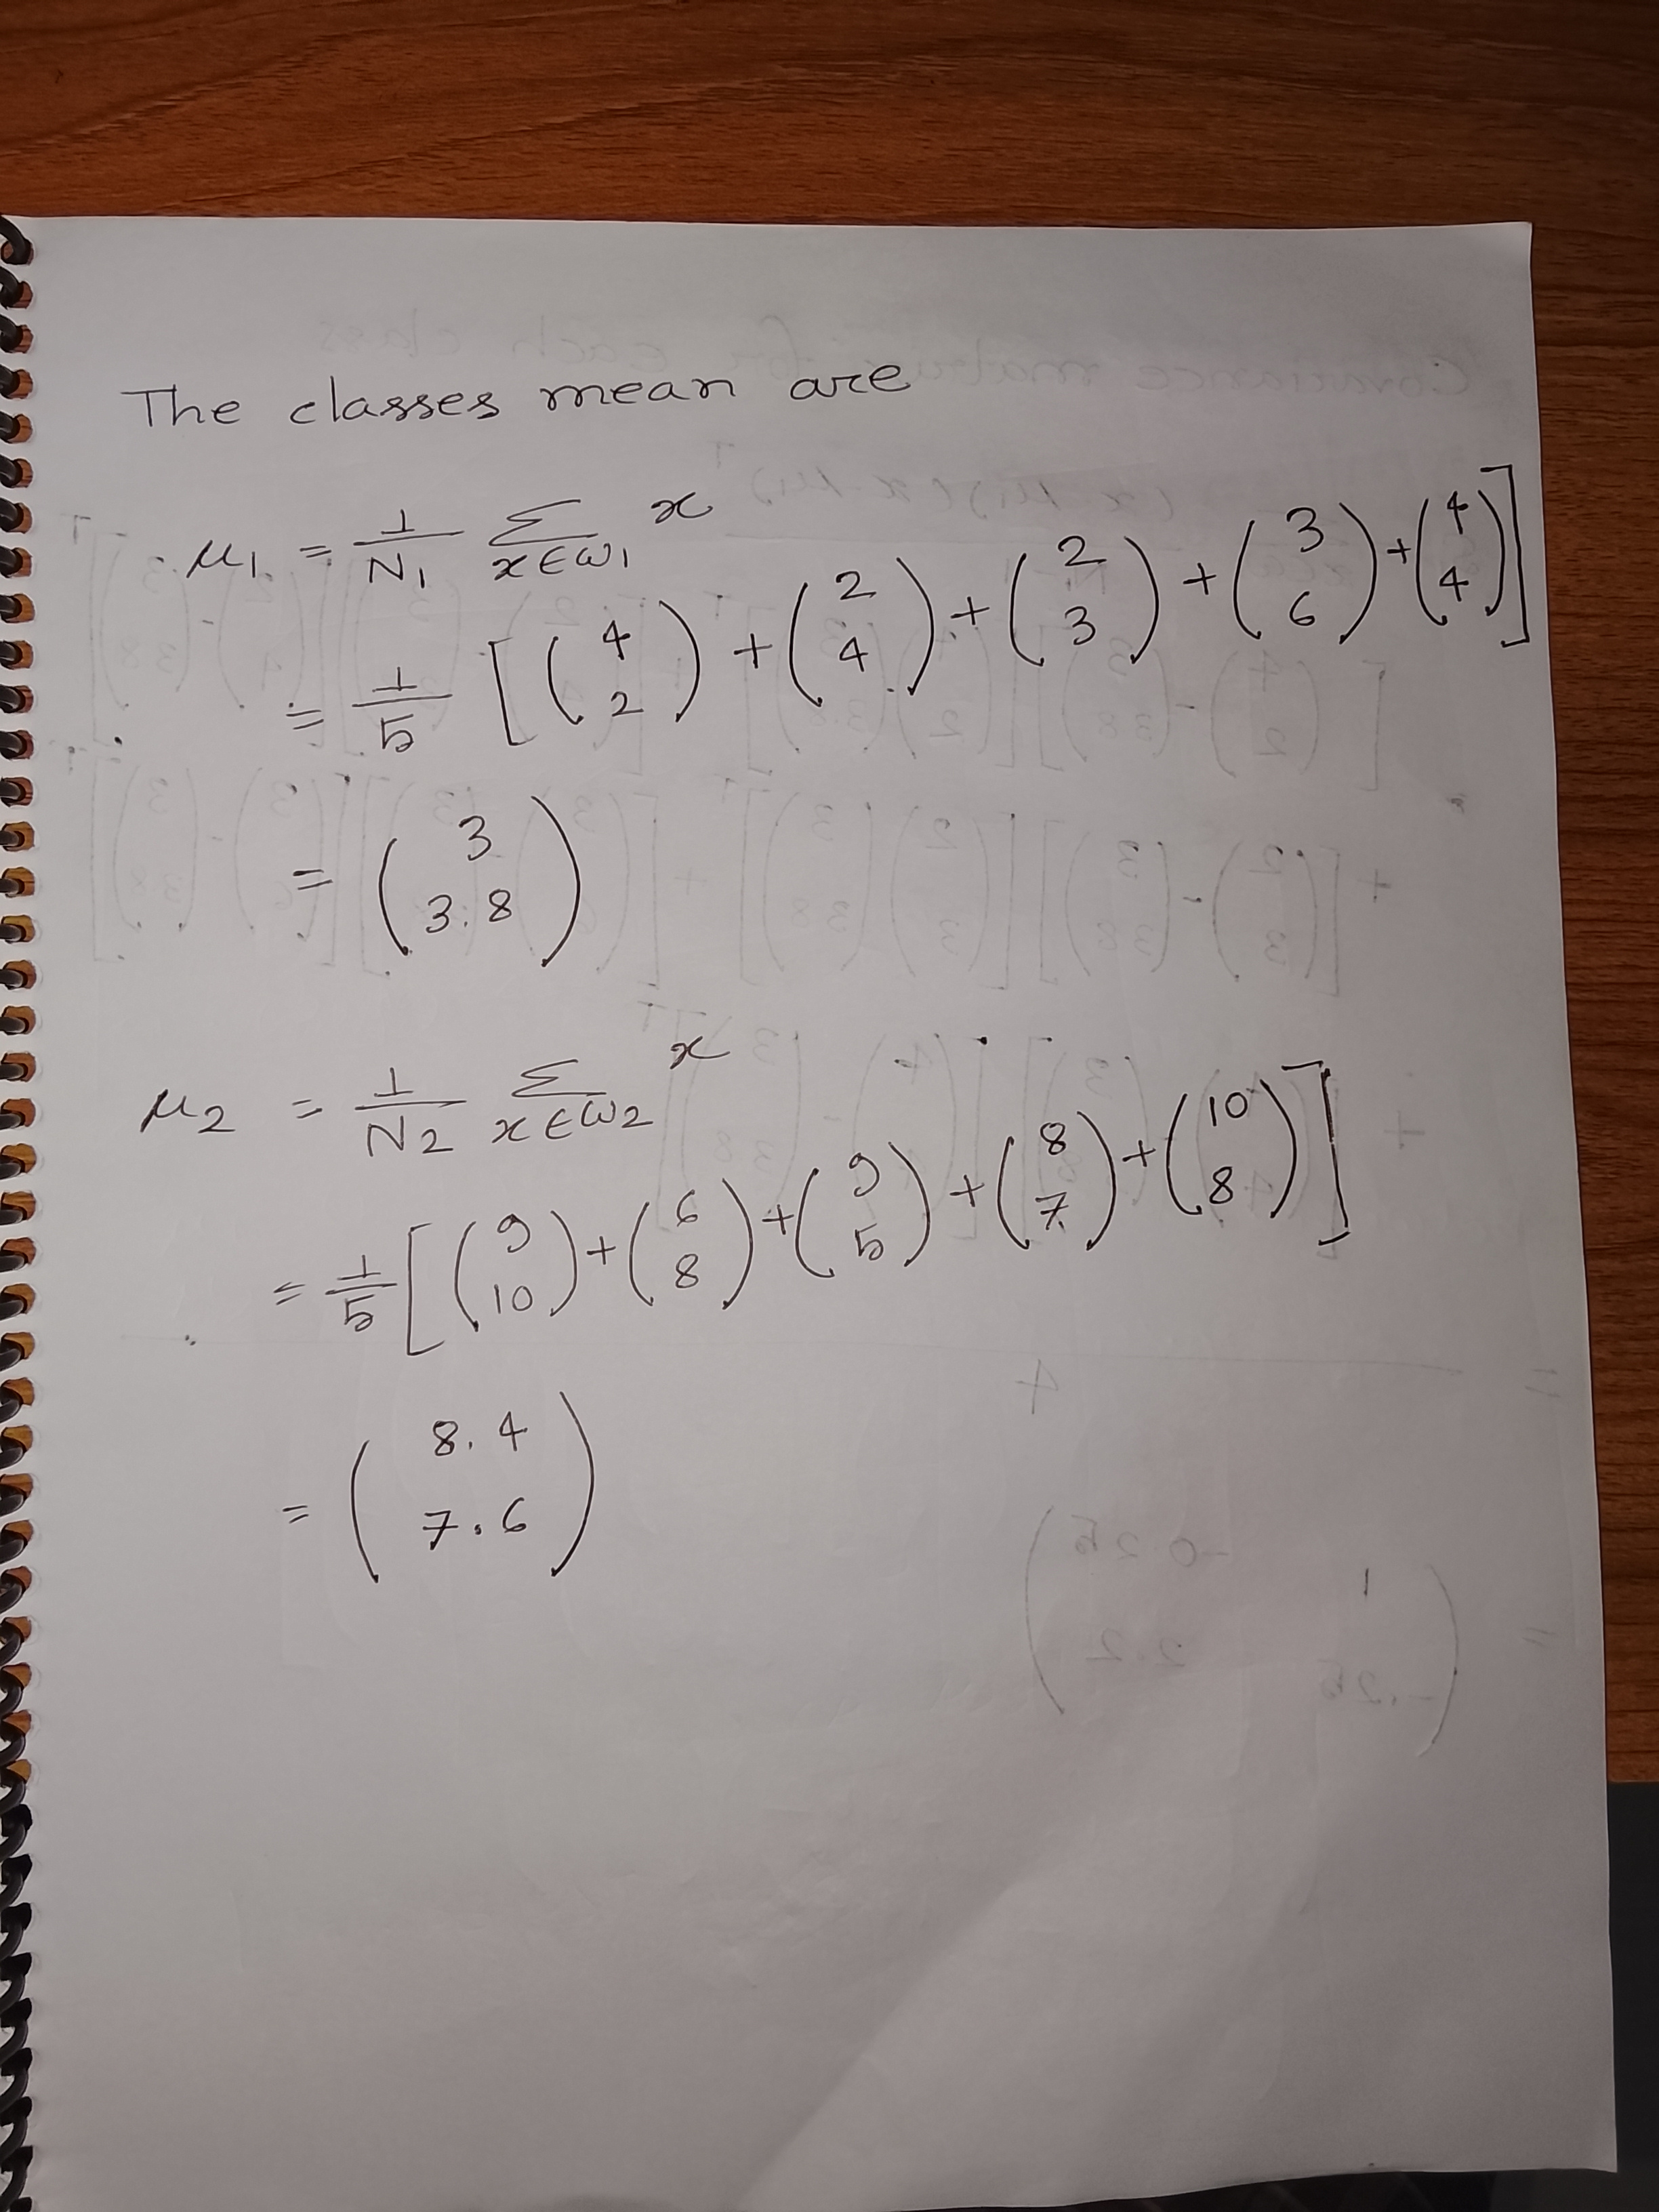 The classes mean are
μ1 = 1/N1 Σ x∈ω1 x
= 1/5 [ (4 2) + (2 4) + (2 3) + (3 6) + (4 4) ]
= (3 3.8)
μ2 = 1/N2 Σ x∈ω2 x
= 1/5 [ (9 10) + (6 8) + (9 5) + (8 7) + (10 8) ]
= (8.4 7.6)